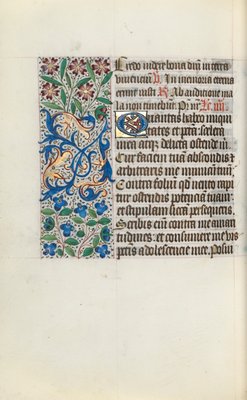 Credo videre bona dñi in terra
viventium. R̃ In memoria eterna
erit iustꝰ R̃ Ab auditione ma
la non timebit. Pr̃ Lc̃. iiii.
Quantas habeo iniqui
tates et pctã scelera
mea atqꝫ delicta ostende m̃
Cur faciem tuã abscondis et
arbitraris me inimicum tuũ
Contra foliũ qd̃ vento rapi
tur ostendis potenciã tuam
et stipulam siccã persequeris
Scribis eñi contra me amari
tudines: et consumere me vis
pctis adolescencie mee. Posui